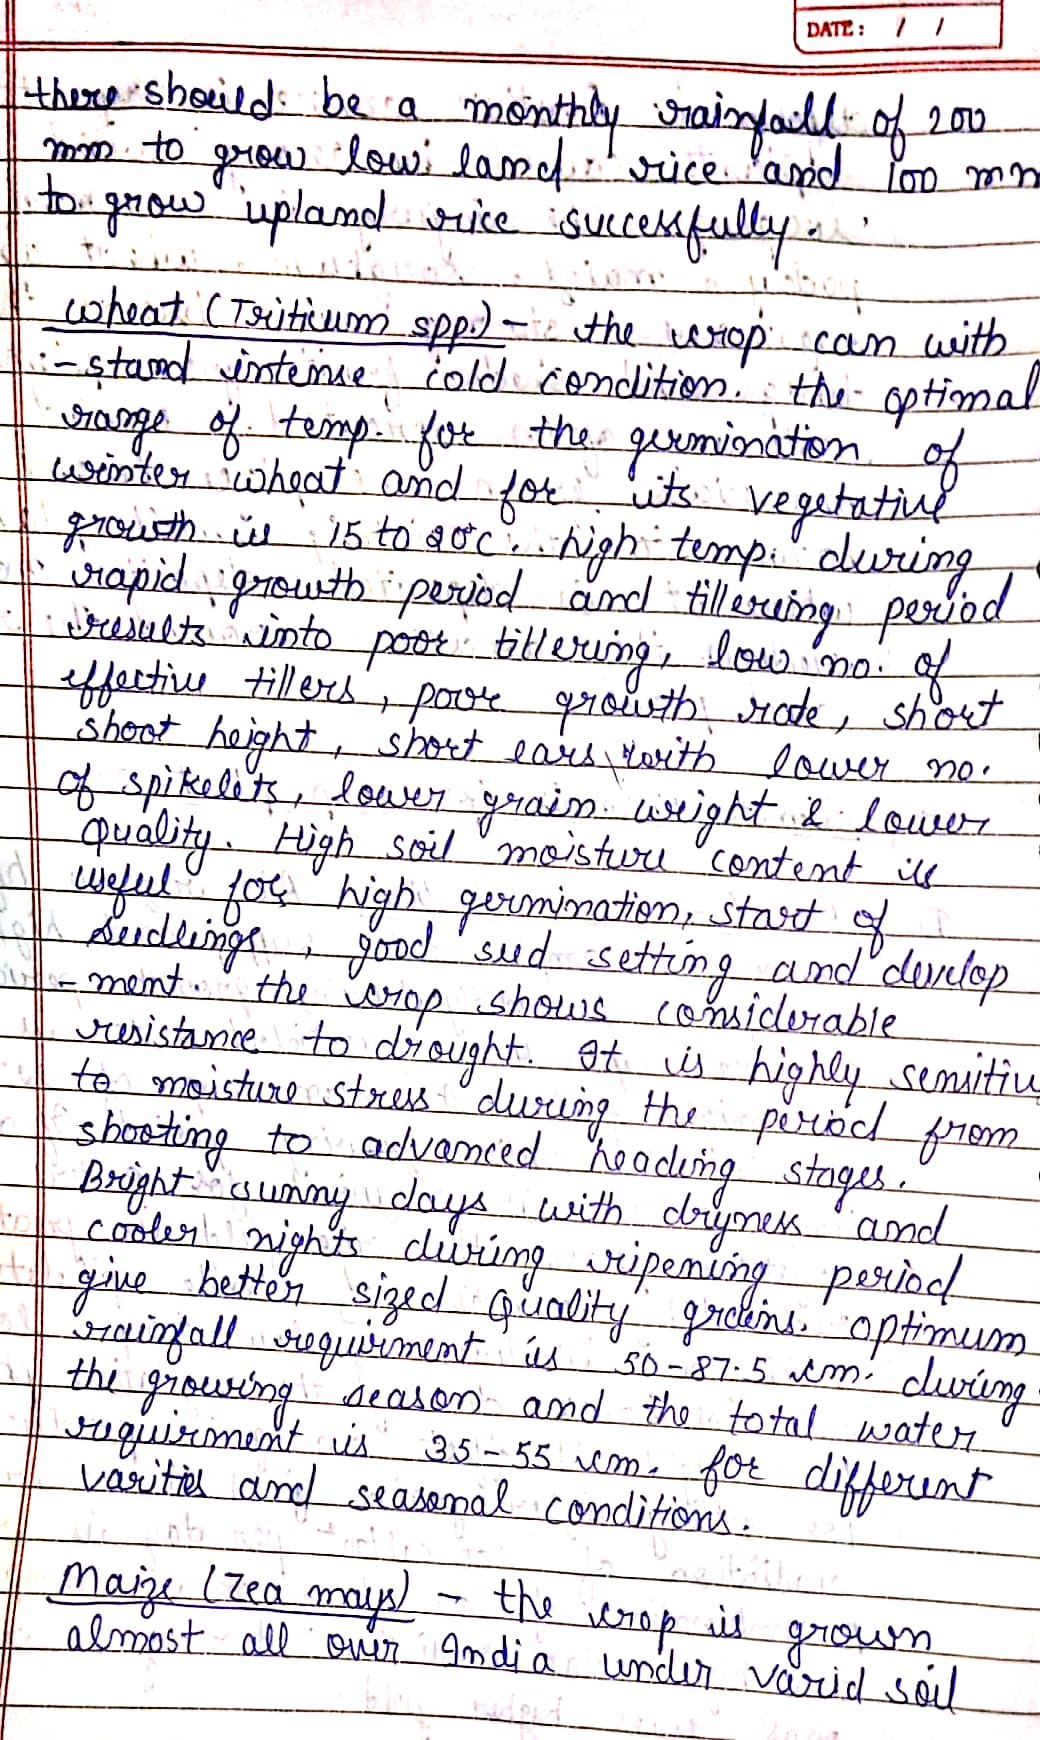 DATE: / /
there should be a monthly rainfall of 200
mm to grow low land rice and 100 mm
to grow upland rice successfully.
Wheat (Triticum spp.) - the crop can with
- stand intense cold condition. the optimal
range of temp. for the germination of
winter wheat and for its vegetative
growth is 15 to 20°c. high temp. during
rapid growth period and tillering period
results into poor tillering, low no. of
effective tillers, poor growth rate, short
shoot height, short ears with lower no.
of spikelets, lower grain weight & lower
quality. High soil moisture content is
useful for high germination, start of
seedlings, good seed setting and develop
- ment. the crop shows considerable
resistance to drought. It is highly sensitive
to moisture stress during the period from
shooting to advanced heading stages.
Bright sunny days with dryness and
cooler nights during ripening period
give better sized quality grains. optimum
rainfall requirment is 50-87.5 cm. during
the growing season and the total water
requirment is 35-55 cm. for different
varities and seasonal conditions.
Maize (Zea mays) - the crop is grown
almost all over India under varid soil